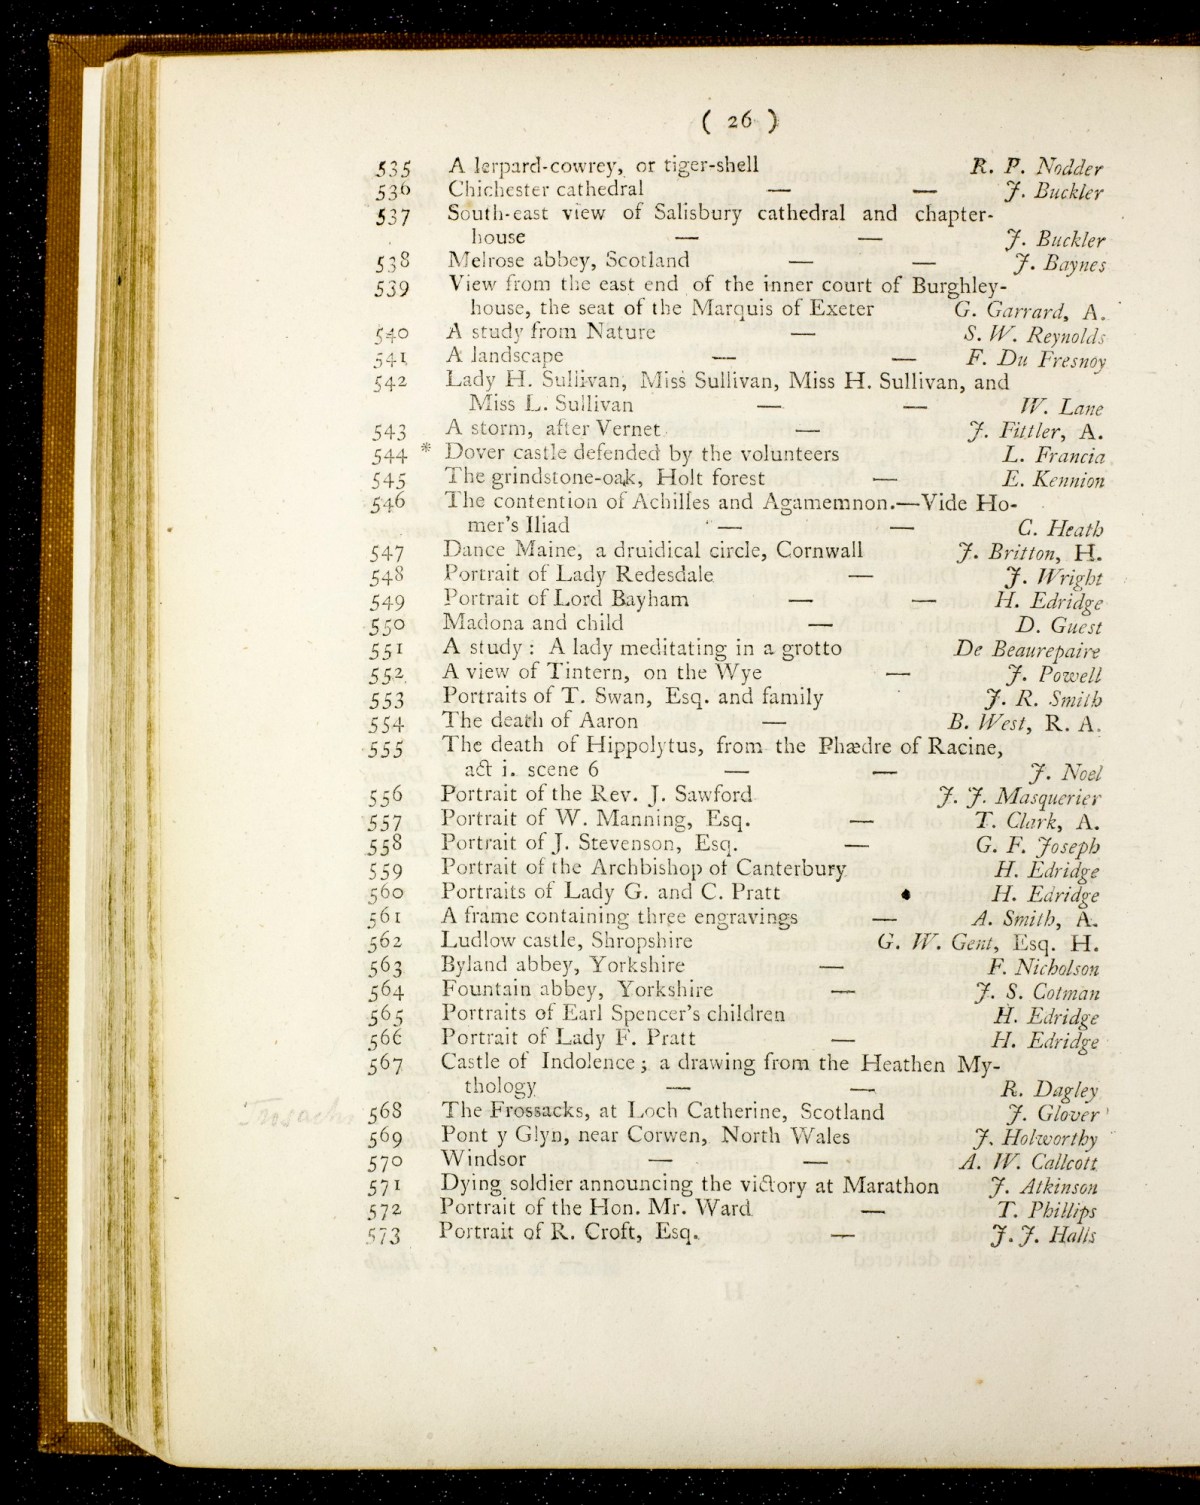 ( 26 )
535 A lerpard-cowrey, or tiger-shell R. P. Nodder
536 Chichester cathedral — — J. Buckler
537 South-east view of Salisbury cathedral and chapter-
house — — J. Buckler
538 Melrose abbey, Scotland — — J. Baynes
539 View from the east end of the inner court of Burghley-
house, the seat of the Marquis of Exeter G. Garrard, A.
540 A study from Nature — S. W. Reynolds
541 A landscape — — F. Du Fresnoy
542 Lady H. Sullivan, Miss Sullivan, Miss H. Sullivan, and
Miss L. Sullivan — — W. Lane
543 A storm, after Vernet — J. Fittler, A.
544 * Dover castle defended by the volunteers L. Francia
545 The grindstone-oak, Holt forest — E. Kennion
546 The contention of Achilles and Agamemnon.—Vide Ho-
mer's Iliad — — C. Heath
547 Dance Maine, a druidical circle, Cornwall J. Britton, H.
548 Portrait of Lady Redesdale — J. Wright
549 Portrait of Lord Bayham — — H. Edridge
550 Madona and child — D. Guest
551 A study: A lady meditating in a grotto De Beaurepaire
552 A view of Tintern, on the Wye — J. Powell
553 Portraits of T. Swan, Esq. and family J. R. Smith
554 The death of Aaron — B. West, R. A.
555 The death of Hippolytus, from the Phædre of Racine,
act i. scene 6 — — J. Noel
556 Portrait of the Rev. J. Sawford J. J. Masquerier
557 Portrait of W. Manning, Esq. — T. Clark, A.
558 Portrait of J. Stevenson, Esq. — G. F. Joseph
559 Portrait of the Archbishop of Canterbury H. Edridge
560 Portraits of Lady G. and C. Pratt H. Edridge
561 A frame containing three engravings — A. Smith, A.
562 Ludlow castle, Shropshire G. W. Gent, Esq. H.
563 Byland abbey, Yorkshire — F. Nicholson
564 Fountain abbey, Yorkshire — J. S. Cotman
565 Portraits of Earl Spencer's children H. Edridge
566 Portrait of Lady F. Pratt — H. Edridge
567 Castle of Indolence; a drawing from the Heathen My-
thology — — R. Dagley
Trosachs 568 The Frossacks, at Loch Catherine, Scotland J. Glover
569 Pont y Glyn, near Corwen, North Wales J. Holworthy
570 Windsor — — A. W. Callcott
571 Dying soldier announcing the victory at Marathon J. Atkinson
572 Portrait of the Hon. Mr. Ward — T. Phillips
573 Portrait of R. Croft, Esq. — J. J. Halls